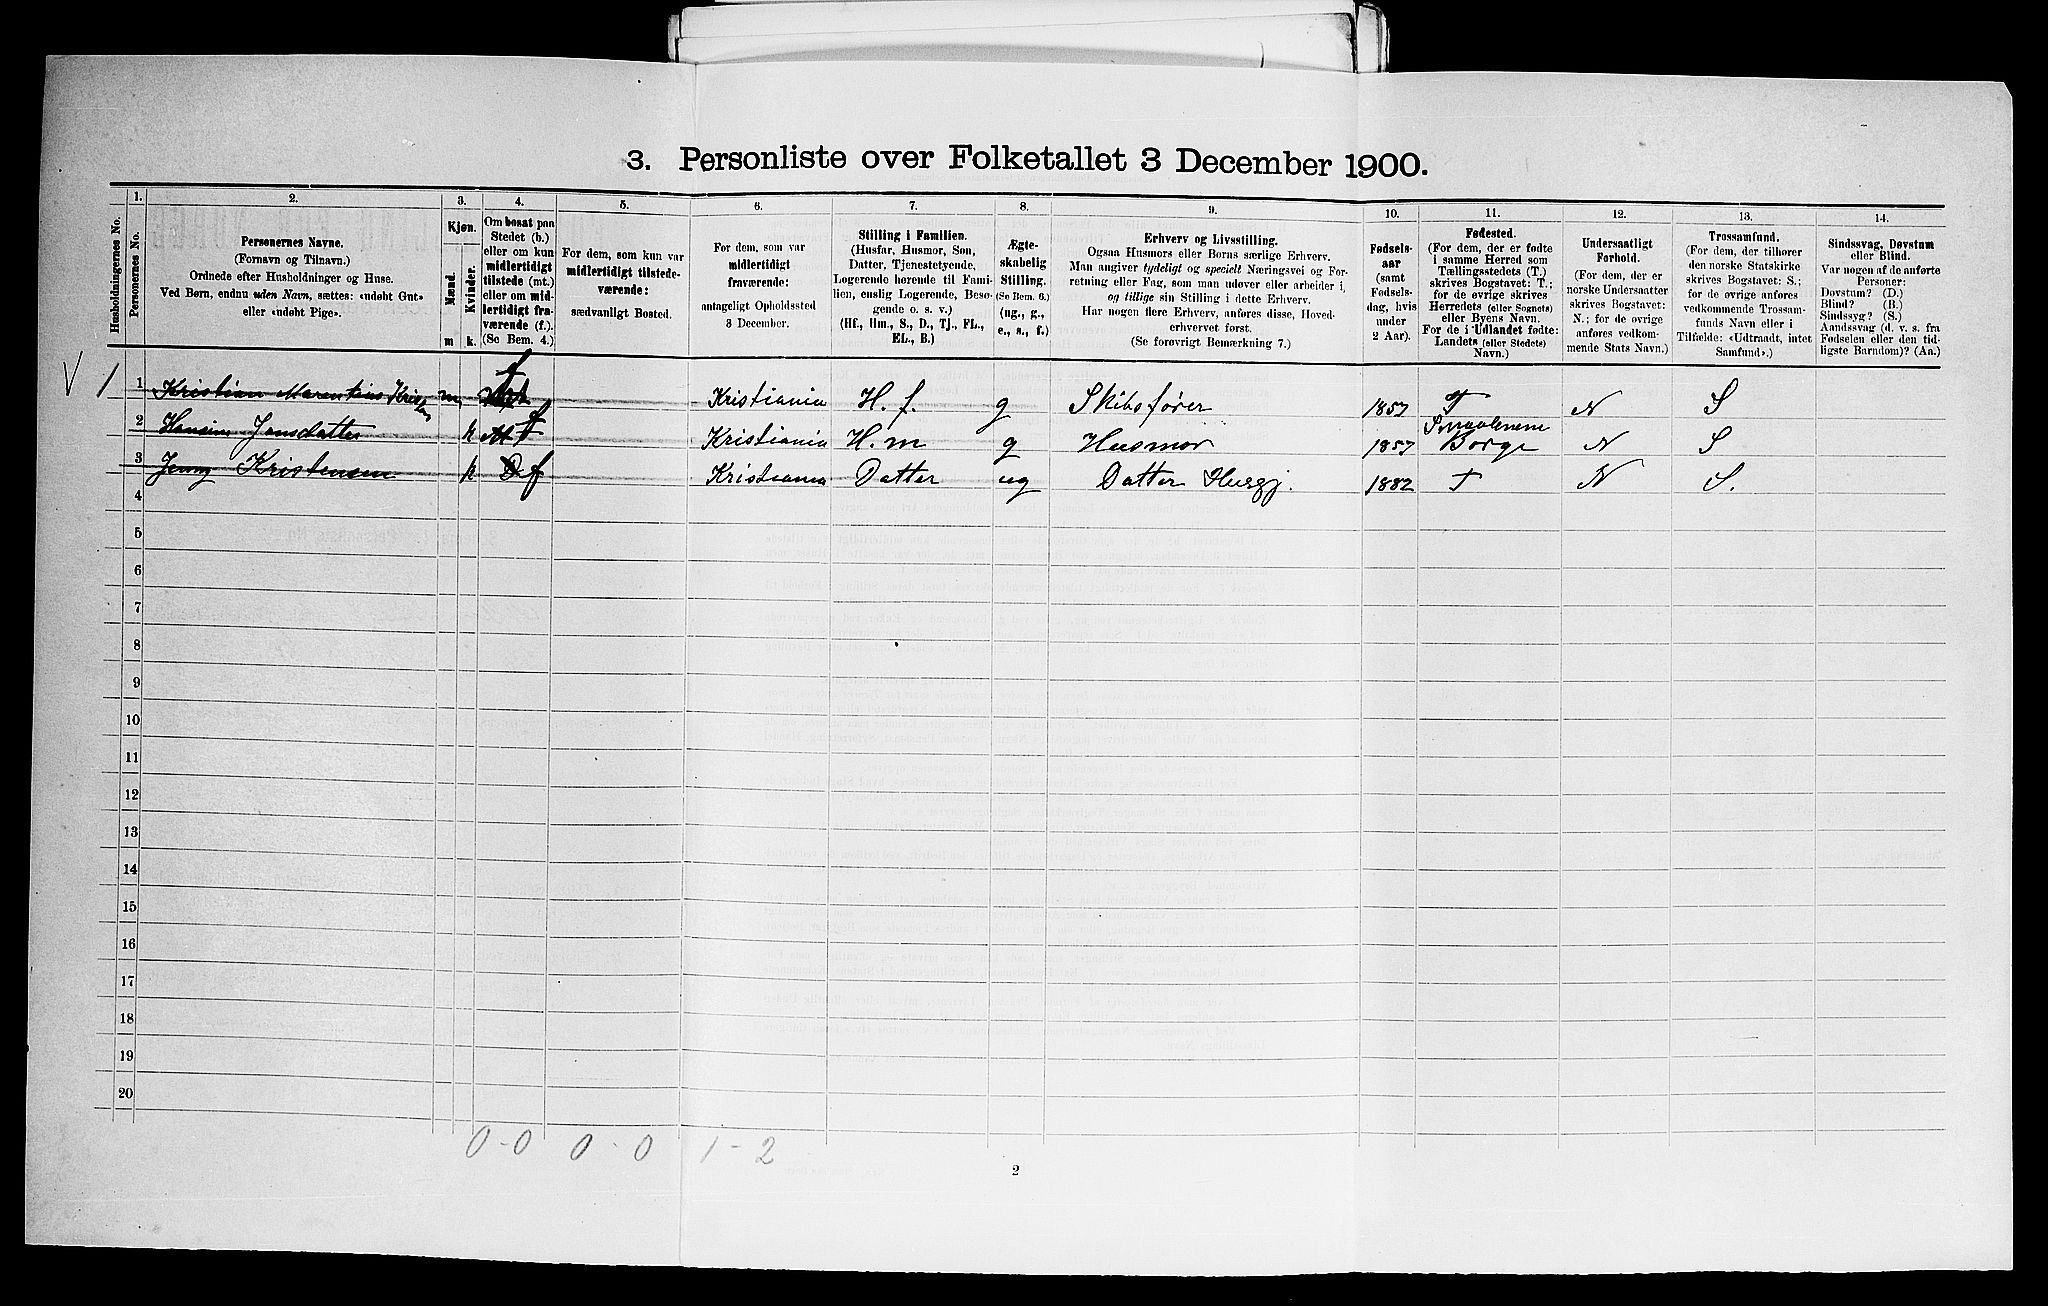 3. Personliste over Folketallet 3 December 1900.
Husholdningernes No.
1. Personernes No.
2. Personernes Navne. (Fornavn og Tilnavn.) Ordnede efter Husholdninger og Huse. Ved Børn, endnu uden Navn, sættes: «udøbt Gut» eller «udøbt Pige».
3. Kjøn. Mænd. Kvinder. m k.
4. Om bosat paa Stedet (b.) eller om kun midlertidigt tilstede (mt.) eller om midlertidigt fraværende (f.). (Se Bem. 4.)
5. For dem, som kun var midlertidigt tilstedeværende: sædvanligt Bosted.
6. For dem, som var midlertidigt fraværende: antageligt Opholdssted 3 December.
7. Stilling i Familien. (Husfar, Husmor, Søn, Datter, Tjenestetyende, Logerende hørende til Familien, enslig Logerende, Besøgende o. s. v.) (Hf., Hm., S., D., Tj., FL., EL., B.)
8. Ægteskabelig Stilling. (Se Bem. 6.) (ug., g., e., s., f.)
9. Erhverv og Livsstilling. Ogsaa Husmors eller Børns særlige Erhverv. Man angiver tydeligt og specielt Næringsvei og Forretning eller Fag, som man udøver eller arbeider i, og tillige sin Stilling i dette Erhverv. Har nogen flere Erhverv, anføres disse, Hovederhvervet først. (Se forøvrigt Bemærkning 7.)
10. Fødselsaar (samt Fødselsdag, hvis under 2 Aar).
11. Fødested. (For dem, der er fødte i samme Herred som Tællingsstedets (T.) skrives Bogstavet: T.; for de øvrige skrives Herredets (eller Sognets) eller Byens Navn. For de i Udlandet fødte: Landets (eller Stedets) Navn.)
12. Undersaatligt Forhold. (For dem, der er norske Undersaatter skrives Bogstavet: N.; for de øvrige anføres vedkommende Stats Navn.)
13. Trossamfund. (For dem, der tilhører den norske Statskirke skrives Bogstavet: S.; for de øvrige anføres vedkommende Trossamfunds Navn eller i Tilfælde: «Udtraadt, intet Samfund».)
14. Sindssvag, Døvstum eller Blind. Var nogen af de anførte Personer: Døvstum? (D.) Blind? (B.) Sindssyg? (S.) Aandssvag (d. v. s. fra Fødselen eller den tidligste Barndom)? (Aa.)
V 1 1 Kristian Marentius m f Kristiania H. f. g Skibsfører 1857 T N S
2 Jansdatter k f Kristiania H. m g Husmor 1857 Smaalenene Borge N S
3 Jenny Kristensen k f Kristiania Datter ug Datter Husgj. 1882 T N S.
4
5
6
7
8
9
10
11
12
13
14
15
16
17
18
19
20
0-0 0-0 1-2
2